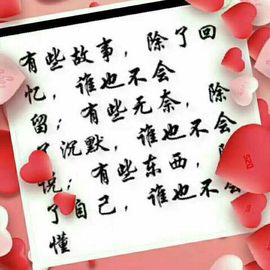 有些故事，除了回
忆，谁也不会
留；有些无奈，除
沉默，谁也不会
说；有些东西，
了自己，谁也不会
懂